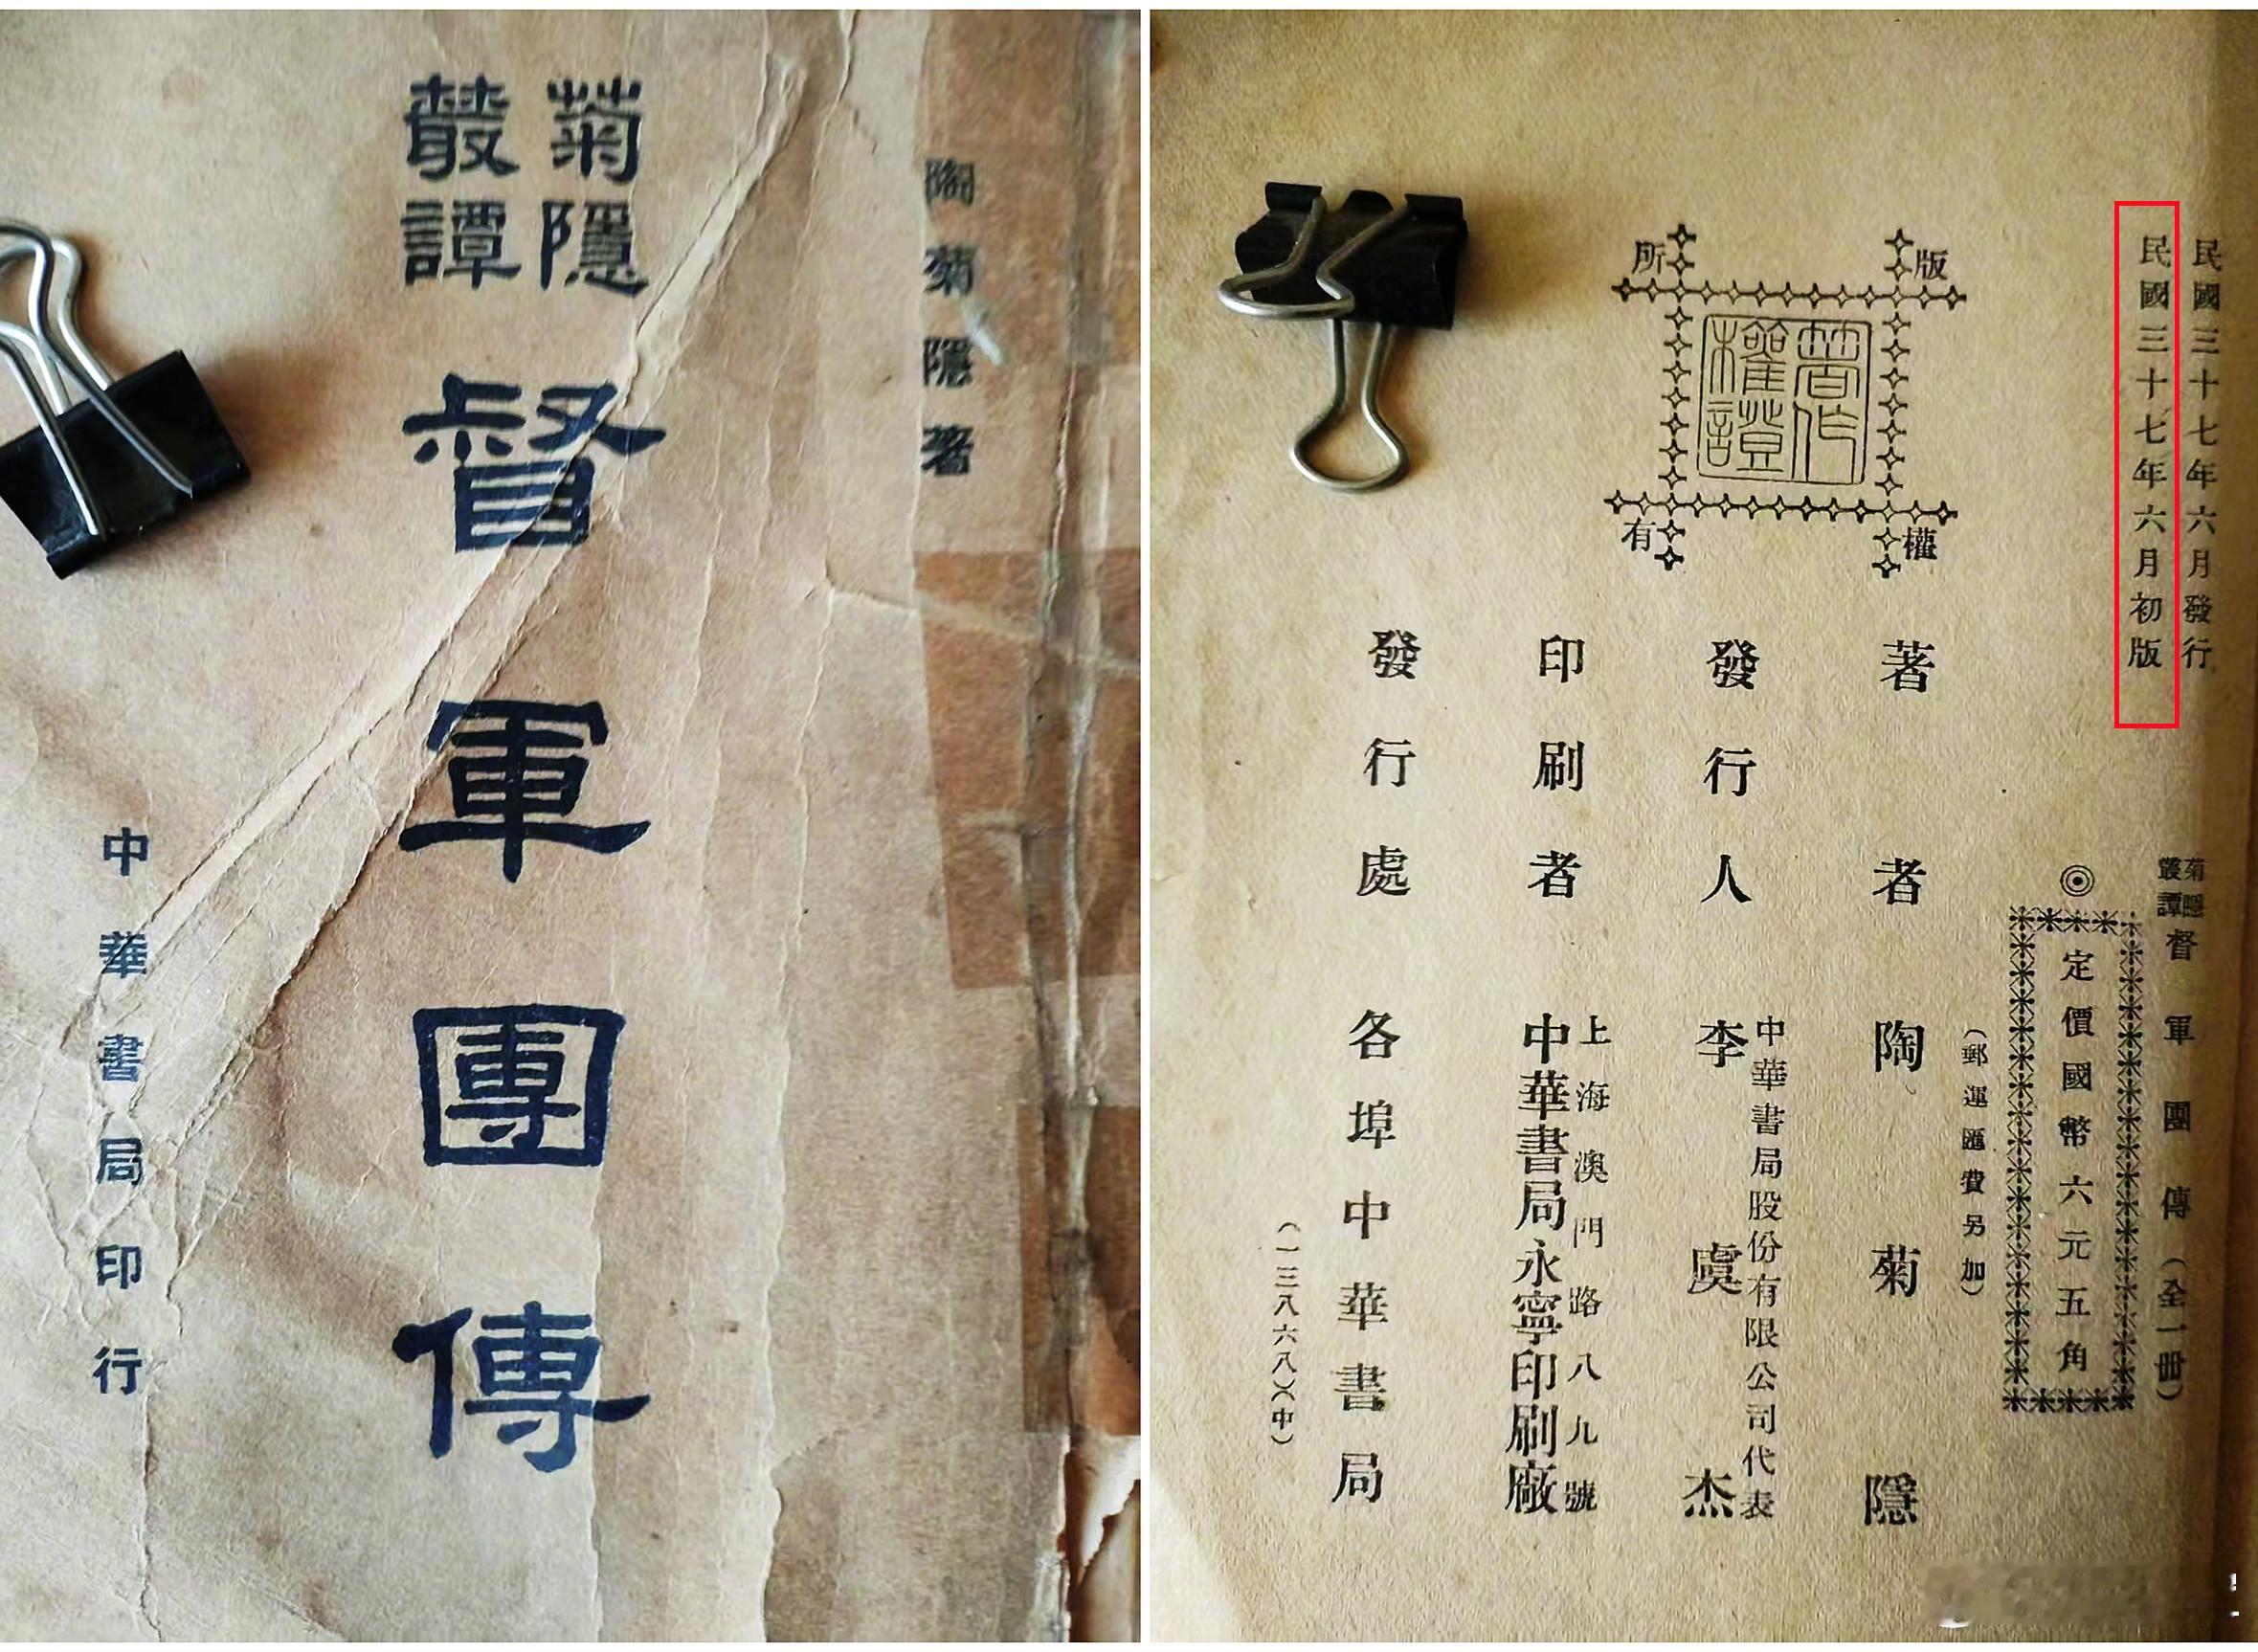 陶菊隱著
菊隱
叢譚
督軍團傳
中華書局印行
民國三十七年六月發行
民國三十七年六月初版
菊隱
叢譚
督軍團傳(全一冊)
◎定價國幣六元五角
(郵運匯費另加)
版權所有
著作
權證
著者 陶菊隱
發行人
中華書局股份有限公司代表
李虞杰
印刷者
上海澳門路八九號
中華書局永寧印刷廠
發行處 各埠中華書局
(一三八六八)(中)